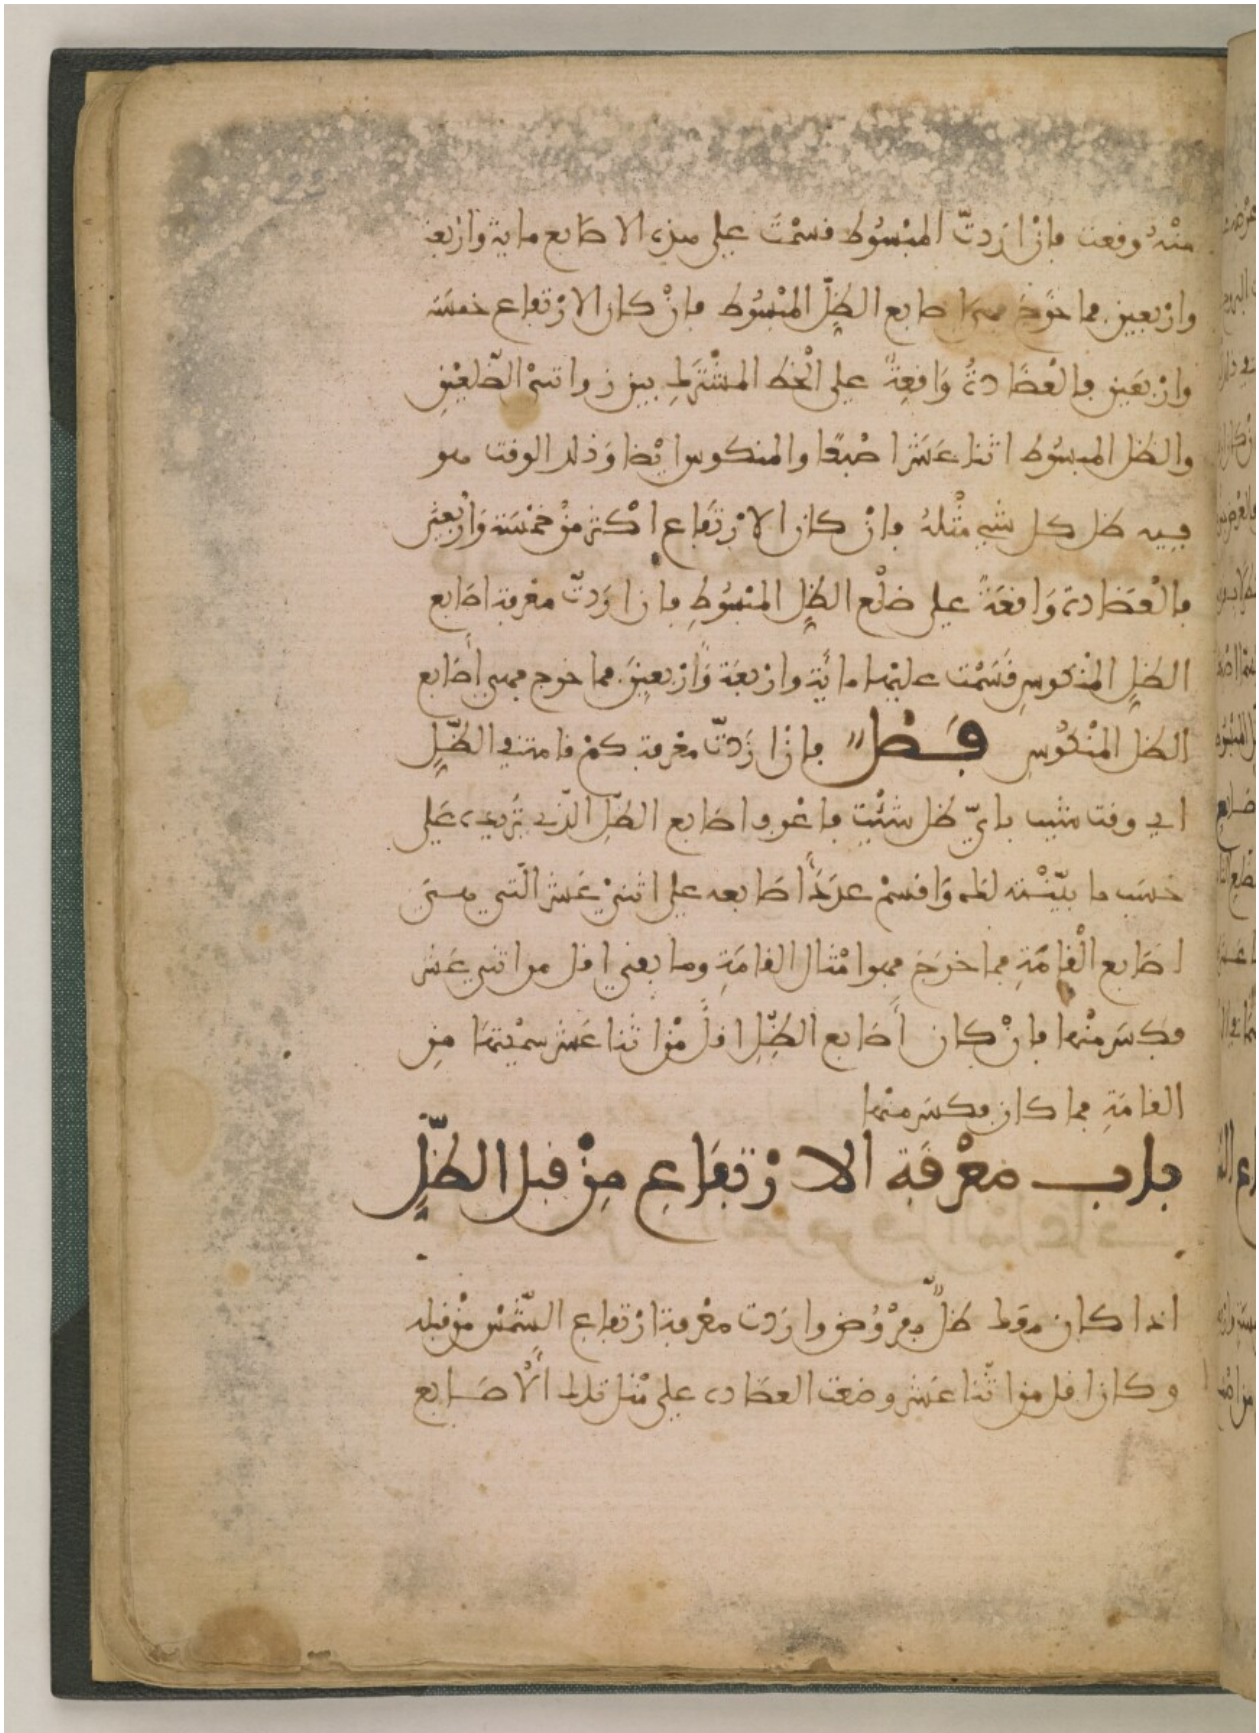 منْه وقعت فإنْ ارَدتّ المبْسُوط قسمْت على هذه الاصابع ماية واربعة
واربعين فما خرَج فهى اصابع الظِلّ المبْسُوط فإنْ كان الارْتفاع خمسَة
وارْبعَين فالعضَادةُ وَاقعةً على الْخط المشْتَرَط بين زواتىْ الضّلعيْنِ
والظل المبسُوط اثنا عَشَر اصْبعًا والمنكوس ايْضا وَذلك الوقت هو
فيه ظل كل شىٍ مثْلهُ فإنْ كان الارْتفَاع اكْثر مِنْ خمْسَة وَارْبعين
فالْعَضَادة وَاقعَةً على ضلْع الظِل المبْسُوطِ فإن ارَدتّ معْرفة اصَابع
الظِلِ المنْكوسِ قسَمْت عليْها مائَة واربعَة وَارْبعِينَ فما خرج فهى أصَابع
الظل المنْكُوسِ فَصْل فإنْ ارَدتّ معْرفة كمْ قامة فى الظِّلِ
اى وقت شيت باىّ ظل شئْتَ فاعْرف اصَابع الظِّل الذى تُريده عَلى
حسَب ما بيّنْته لك وَاقسمْ عدَدَ اصَابعه على اثنىْ عَشر الّتى هىَ
اصَابع الْقامَةِ فما خرَجَ فهو امْثال القامَةِ وما بقى اقل من اثنى عَشر
فكسَر منْها فإنْ كان أَصَابع الظِّلِ اقلَّ مِنْ اثنا عَشر سمّيتهَا مِن
القامَةِ فما كان فكسَر منْها
باب معْرفَة الارْتفَاعِ مِنْ قبل الظِّلِ
اذا كان معك ظلٌّ مفْرُوض واردت معْرفة ارْتفاع الشَّمْس منْ قبله
وكان اقل من اثْنا عَشر وضعْت العضَاده على مثل تلك الْأصَابع